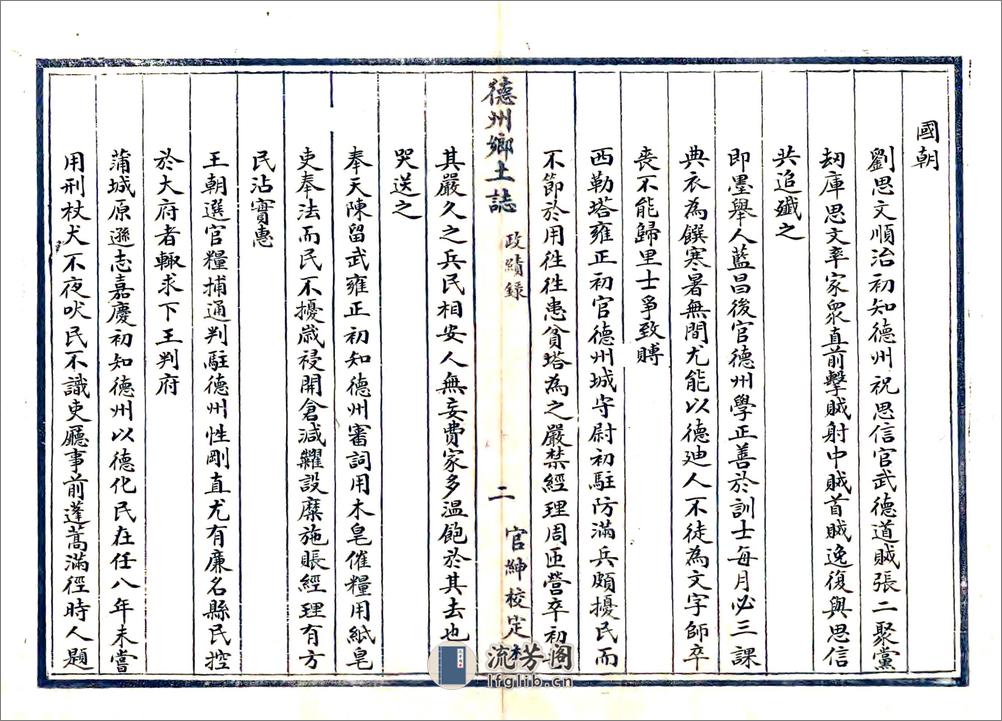 國朝
劉思文順治初知德州祝思信官武德道賊張二聚黨
刼庫思文率家衆直前擊賊射中賊首賊逸復與思信
共追殲之
即墨舉人藍昌後官德州學正善於訓士每月必三課
典衣為饌寒暑無間尤能以德廸人不徒為文字師卒
喪不能歸里士爭致賻
西勒塔雍正初官德州城守尉初駐防滿兵頗擾民而
不節於用徃徃患貧塔為之嚴禁經理周匝營卒初
德州鄉土誌
政績錄
二
官紳校定
其嚴久之兵民相安人無妄費家多温飽於其去也
哭送之
奉天陳留武雍正初知德州審詞用木皂催糧用紙皂
吏奉法而民不擾歲祲開倉減糶設糜施賑經理有方
民沾實惠
王朝選官糧捕通判駐德州性剛直尤有廉名縣民控
於大府者輒求下王判府
蒲城原遜志嘉慶初知德州以德化民在任八年未嘗
用刑杖犬不夜吠民不識吏廳事前蓬蒿滿徑時人題
流芳阁
lfglib.cn